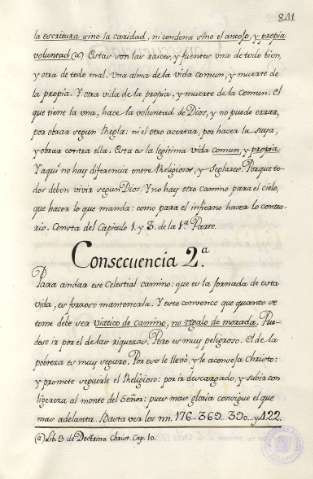 241
la escritura sino la caridad, ni condena sino el anteojo, y propia
voluntad (a) Estas son las raices, y fuentes: una de todo bien,
y otra de todo mal. Una alma de la vida comun, y muerte de
la propia. Y otra vida de la propia, y muerte de la comun. El
que tiene la una, hace la voluntad de Dios, y no puede errar,
por obrar segun Regla: ni el otro acertar, por hacer la suya,
y obrar contra ella. Esta es la legitima vida comun, y propia.
Y aqui no hay diferencia entre Religiosos, y Seglares. Porque to-
dos deben vivir segun Dios. Y no hay otro camino para el cielo,
que hacer lo que manda: como para el infierno hacer lo contra-
rio. Consta del Capitulo 1. y 3. de la 1.ª Parte.
Consecuencia 2.ª
Para andar ese Celestial camino: que es la jornada de esta
vida, es forzoso mantenerla. Y este convence que quanto se
tome debe ser viatico de camino, no regalo de morada. Pue-
dese ir por el de las riquezas. Pero es muy peligroso. El de la
pobreza es muy seguro. Por eso le llevó, y le aconseja Christo:
y promete seguirle el Religioso: por ir descargado, y subir con
ligereza al monte del Señor: pues mas gloria consigue el que
mas adelanta. Basta ver los nn. 176. 369. 390. y 422.
(a) Lib. 3. de Doctrina Christ. Cap. 10.